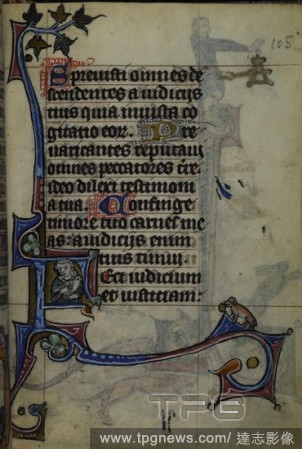 105
Spreuisti omnes de
scendentes a iudicijs
tuis quia iniusta co
gitatio eor. Pre
uaricantes reputaui
omnes peccatores t̄re
ideo dilexi testimoni
a tua. Confinge
timore tuo carnes me
as: a iudicijs enim
tuis timui.
Feci iudicium
et iusticiam:
TPG
www.tpgnews.com/ 達志影像